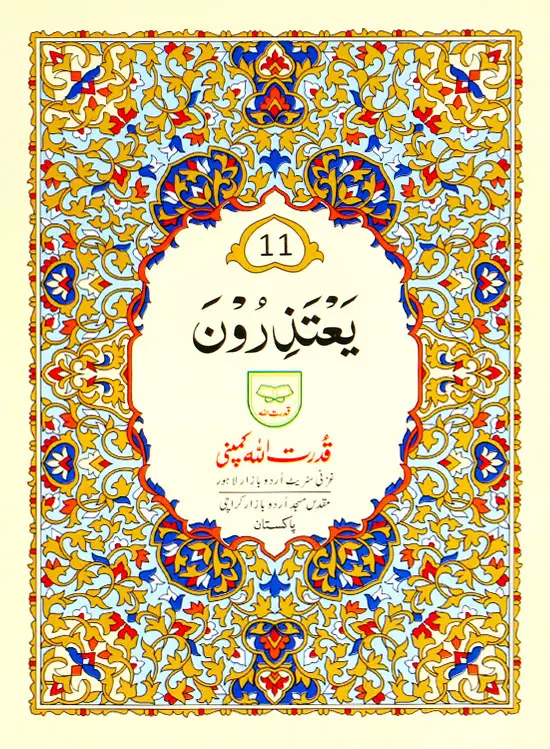 11
يَعْتَذِرُوْنَ
قدرت اللہ
قُدرت اللہ کمپنی
غزنی سٹریٹ اُردو بازار لاہور
مقدس مسجد اُردو بازار کراچی
پاکستان